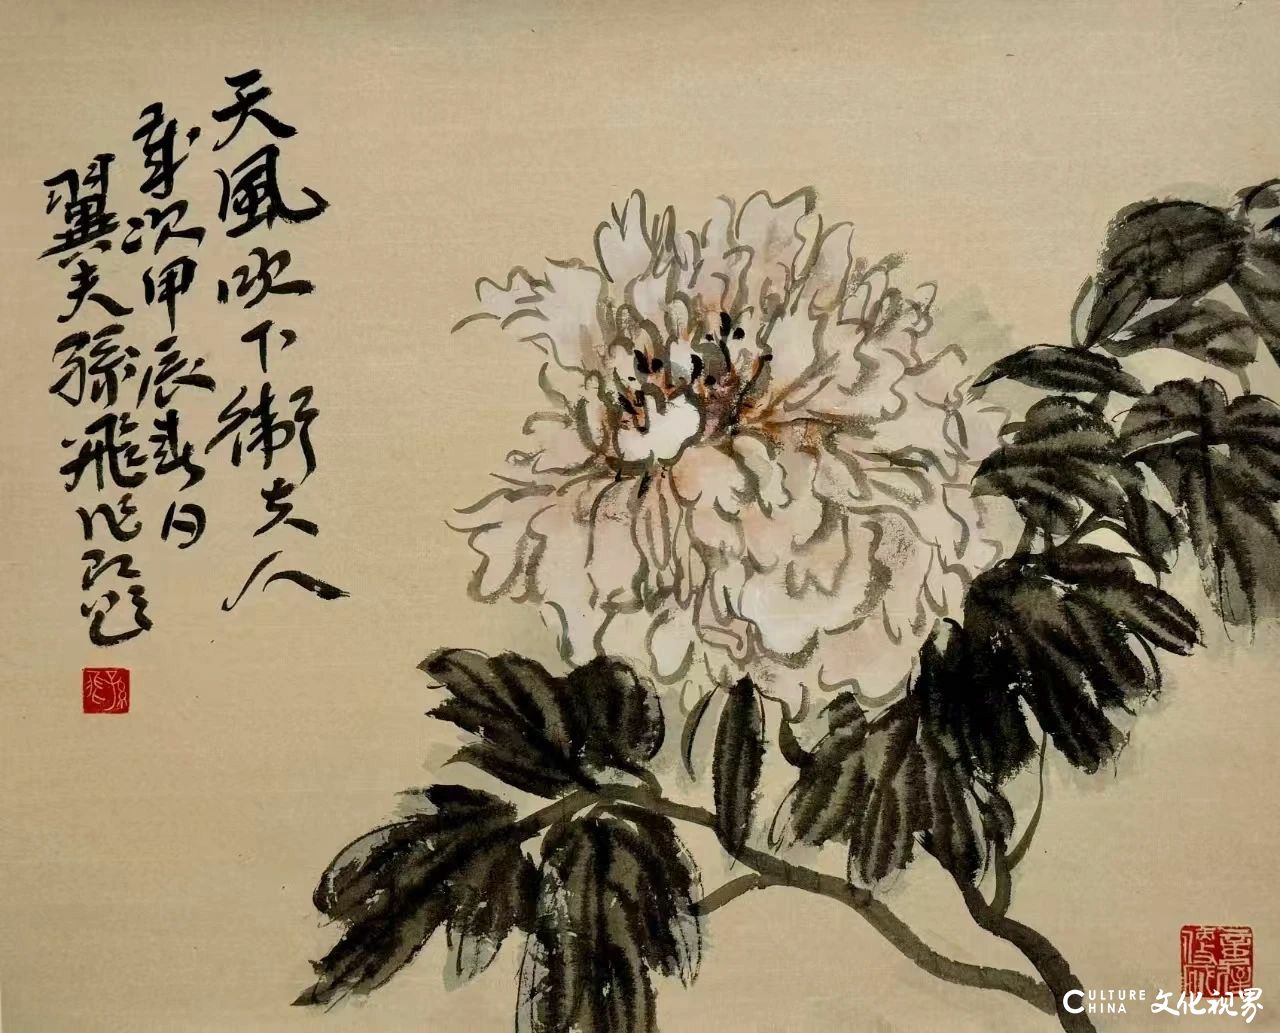 天風吹下衛夫人
歲次甲辰春日
翼夫孫飛作併題
孫飛
CULTURE CHINA 文化视界